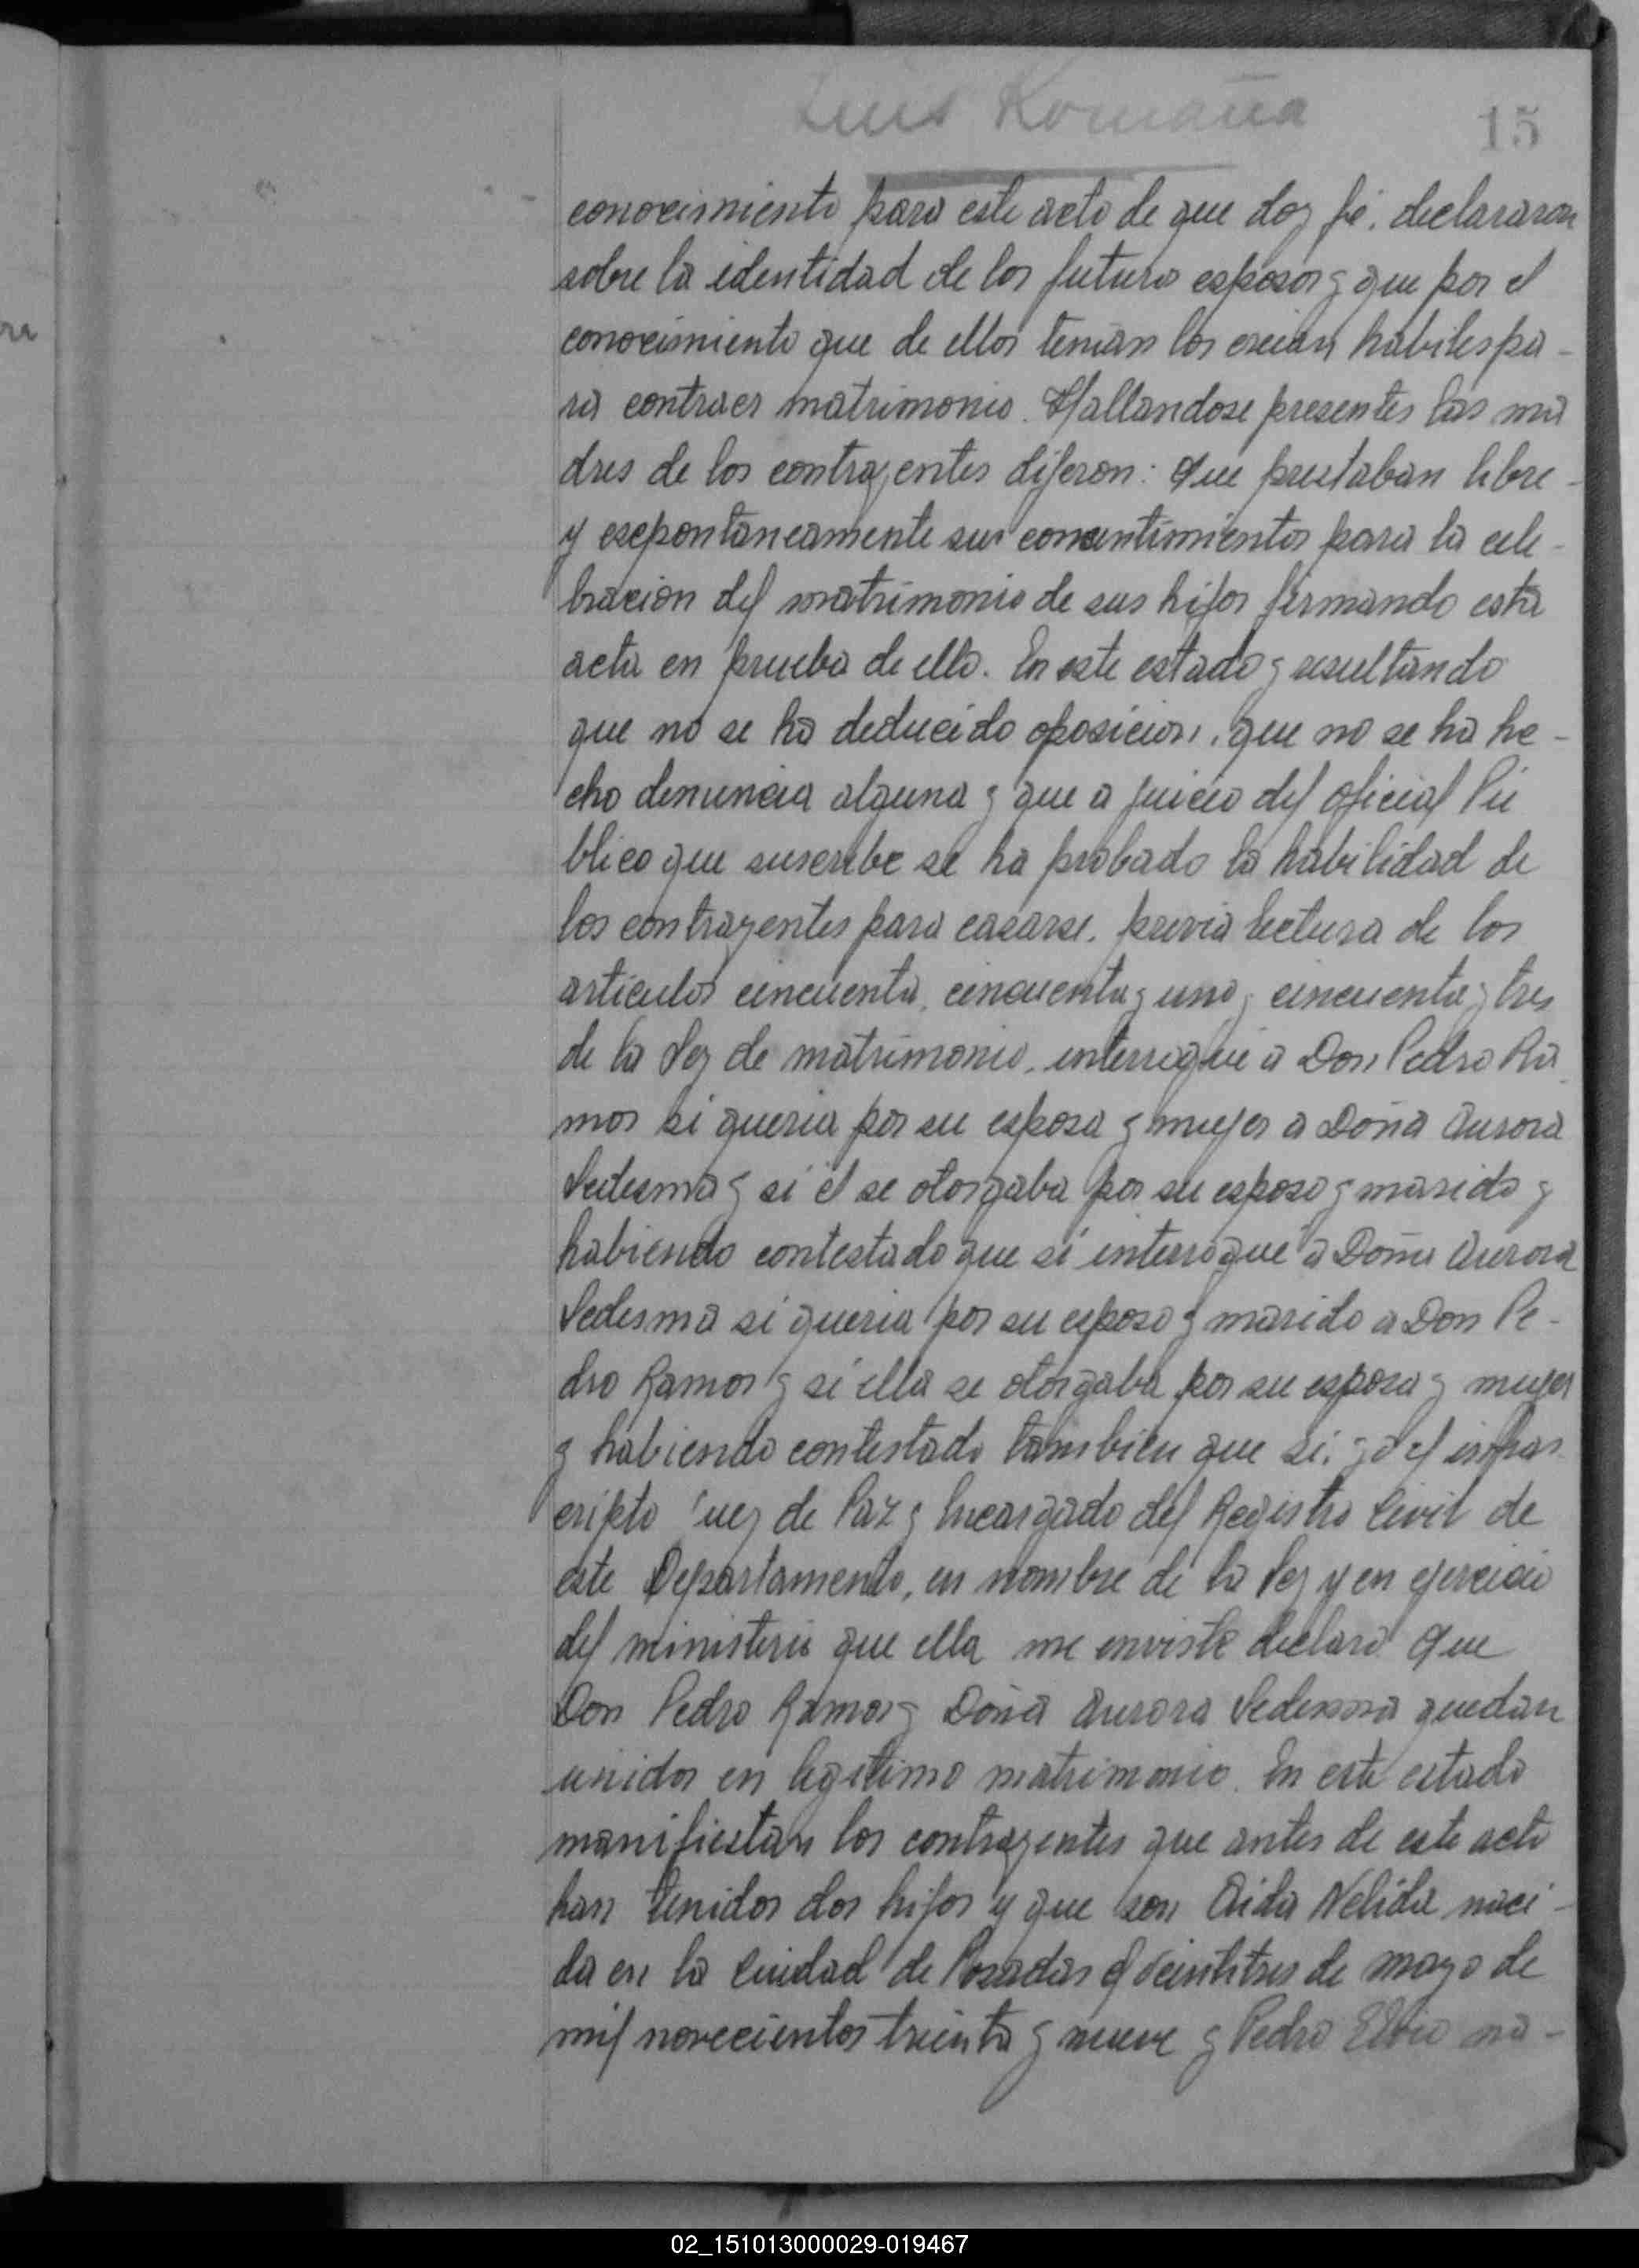 Luis Romaña
15
conocimiento para este acto de que doy fé, declararon
sobre la identidad de los futuro esposos y que por el
conocimiento que de ellos tenian los creian habiles pa-
ra contraer matrimonio. Hallandose presentes las ma
dres de los contrayentes dijeron: Que prestaban libre-
y esepontaneamente sus concentimientos para la cele-
bracion del matrimonio de sus hijos firmando esta
acta en prueba de ello. En este estado y resultando
que no se ha deducido oposicion, que no se ha he-
cho denuncia alguna y que a juicio del oficial Pú
blico que suscribe se ha probado la habilidad de
los contrayentes para casarse, previa lectura de los
articulos cincuenta, cincuenta y uno y cincuenta y tres
de la Ley de matrimonio, interrogué a Don Pedro Ra
mos si queria por su esposa y mujer a Doña Aurora
Ledesma y si él se otorgaba por su esposo y marido y
habiendo contestado que si interrogue a Doña Aurora
Ledesma si queria por su esposo y marido a Don Pe-
dro Ramos y si ella se otorgaba por su esposa y mujer
y habiendo contestado tambien que si, yo el infras
cripto Juez de Paz y Encargado del Registro Civil de
este Departamento, en nombre de la Ley y en ejercicio
del ministerio que ella me enviste declaro que
Don Pedro Ramos y Doña Aurora Ledesma quedan
unidos en legitimo matrimonio. En este estado
manifiestan los contrayentes que antes de este acto
han tenidos dos hijos y que son Aida Nelida naci-
da en la Ciudad de Posadas el veintitres de mayo de
mil novecientos treinta y nueve y Pedro Elvio na-
02_151013000029-019467